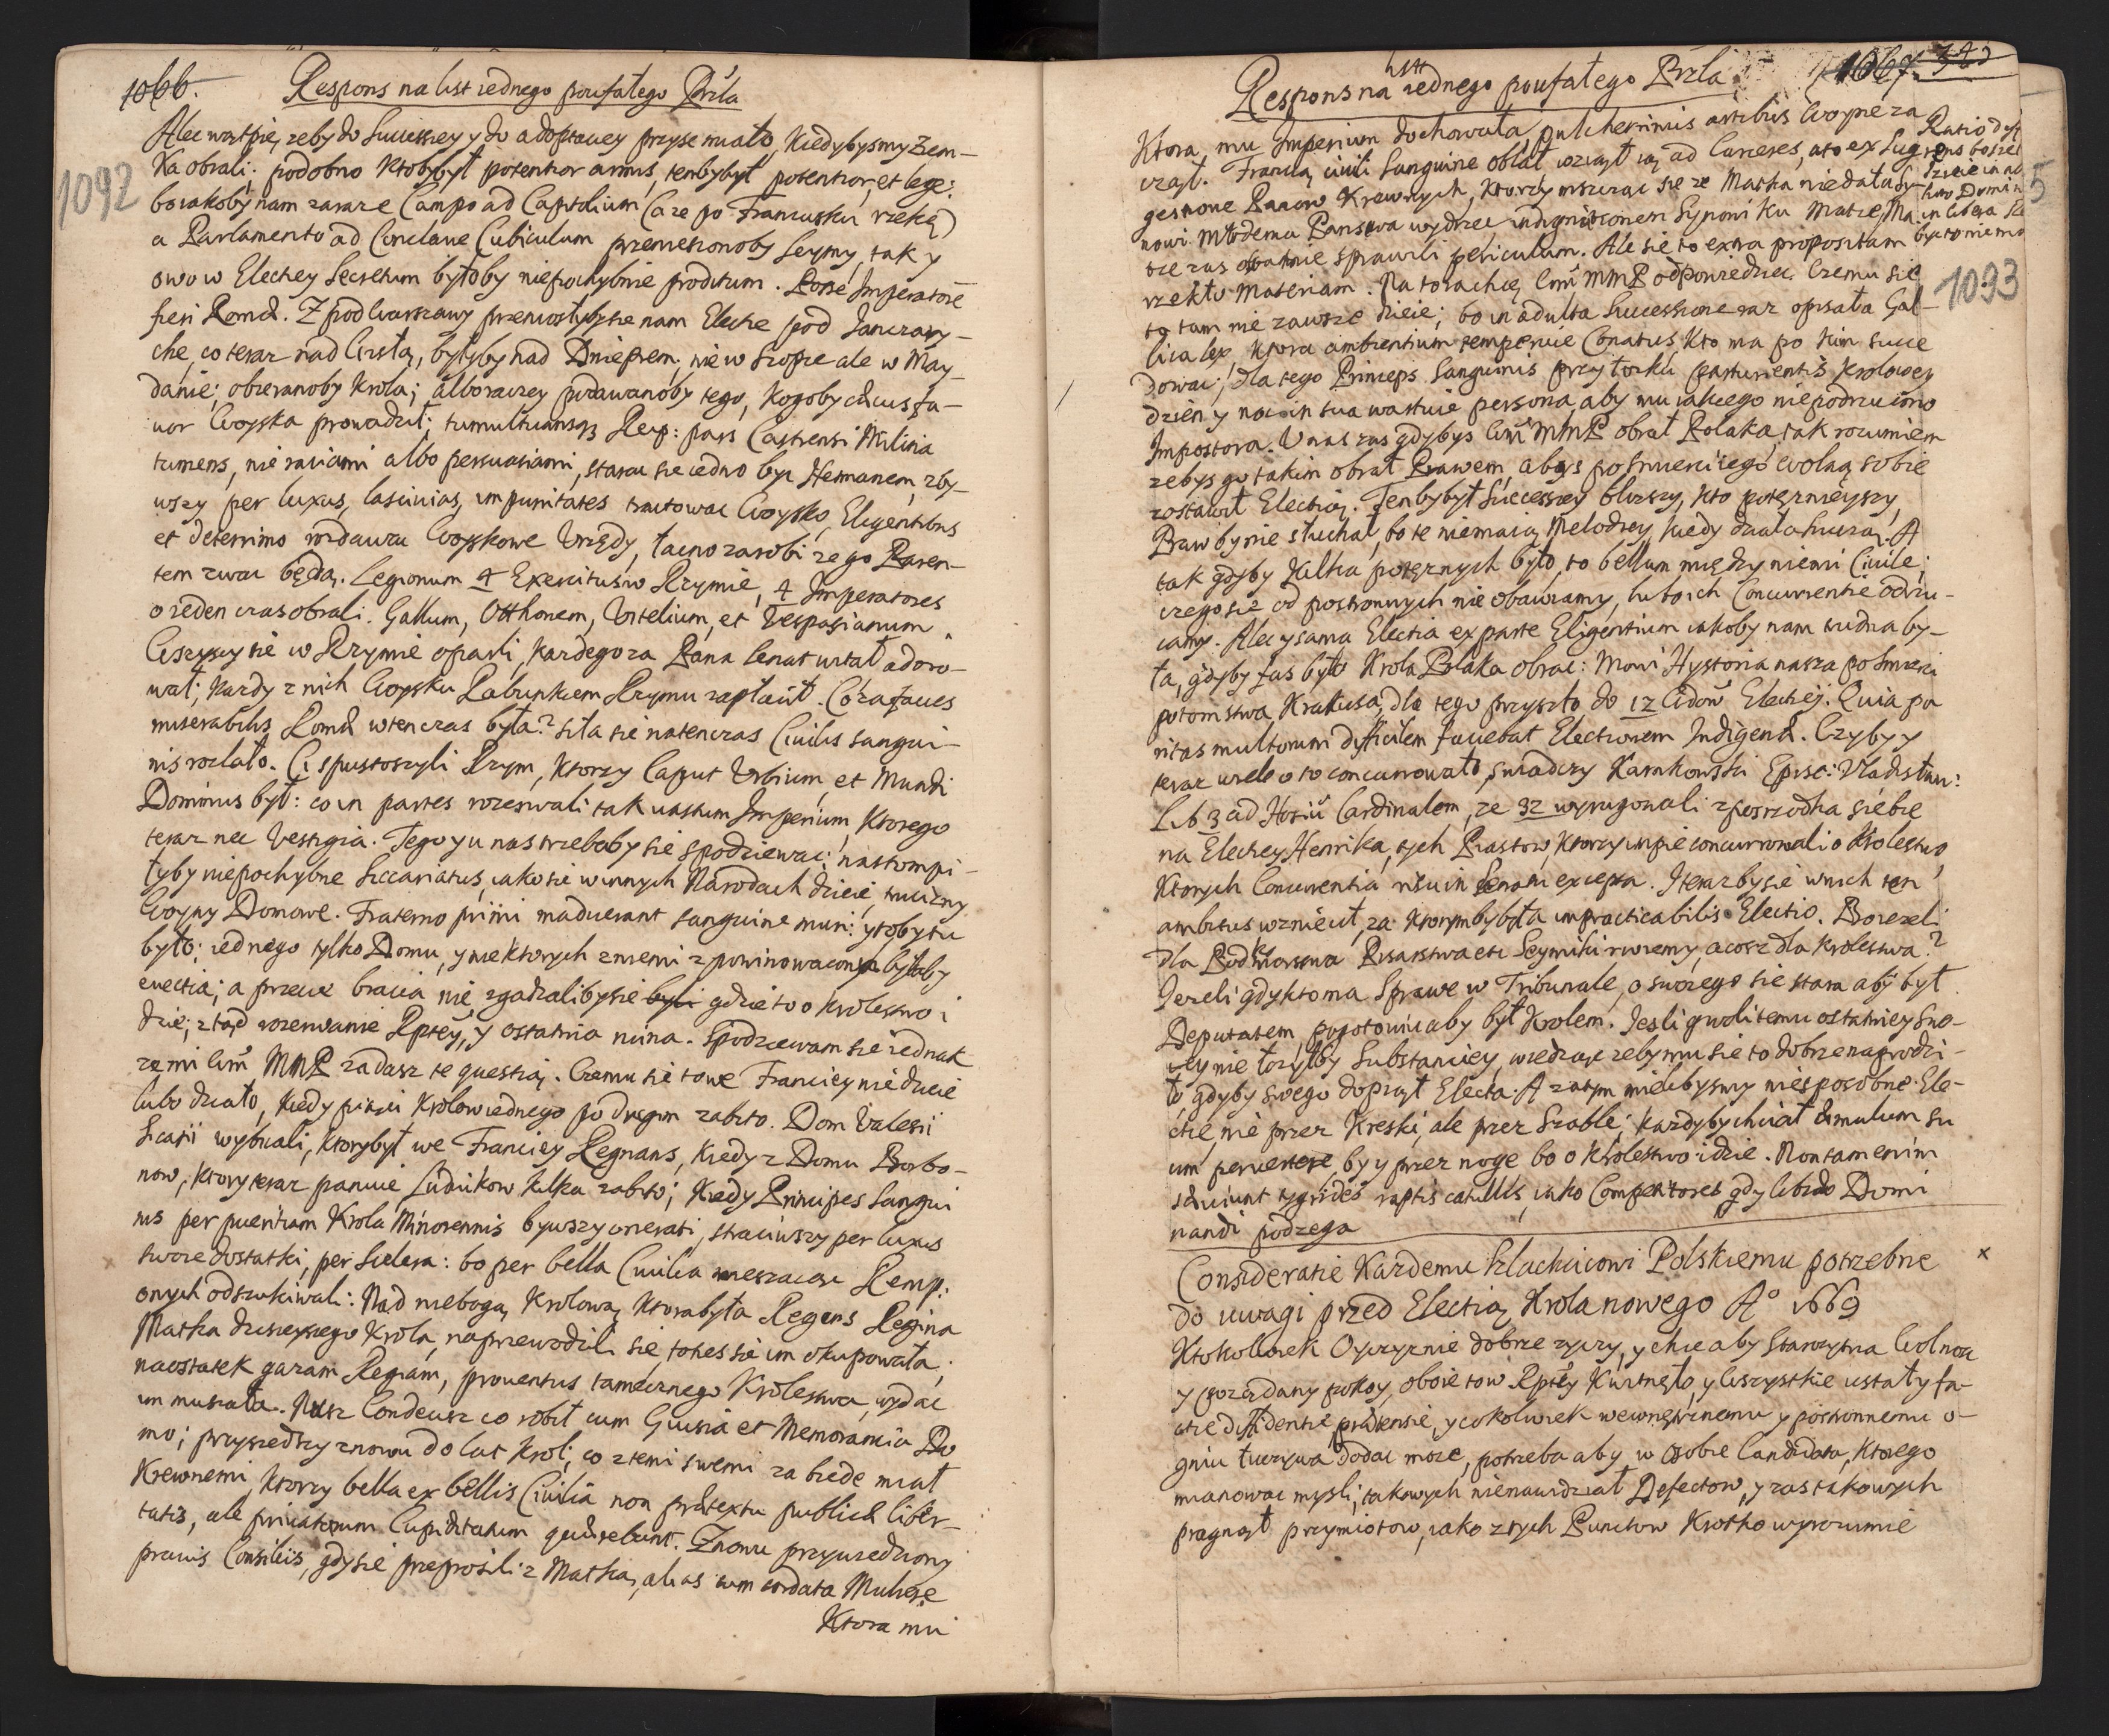 1066. Respons na list iednego poufałego Przla
1092
Alec wątpię, zeby do Successyey y do adoptacyey przyść miało, kiedybysmy Ziem-
ka obrali; podobno ktobybył potentior armis, tenbybył potentior et lege:
bo iakoby nam zaraz e Campo ad Capitolium (a ze po Francusku rzekę)
a Parlamento ad Conclave Cubiculum przeniesionoby Seymy, tak y
owo w Electiey Secretum byłoby niepochybnie proditum. Posse Imperatore
fieri Romæ. Z pod Warszawy przeniosłybysie nam Electie pod Janczary-
che, co teraz nad Wisłą, byłyby nad Dnieprem; nie w Szopie ale w May-
danie; obieranoby Krola; albo raczey podawanoby tego, kogoby chciał fa-
vor Woyska prowadził; tumultuansq3 Reip: pars Castrensi Militia
tumens, nie raciami albo persuasiami, stara sie iedno byc Hetmanem, zby-
wszy per luxus, lascivias, impunitates traktowac Woysko, Eligentibus
et deterrimo rozdawza Woyskowe Urzędy, łacno zarobi ze go Paren-
tem zwac będą. Legionum 4 Exercitus w Rzymie, 4 Imperatores
o ieden czas obrali. Galbum, Otthonem, Vitelium, et Vespasianum.
Wszyscy sie w Rzymie oparli, kazdego za Pana Senat witał adoro-
wał; kazdy z nich Woysku Rabunkiem Rzymu zapłacił. Co za facies
miserabilis Romæ wtenczas była? siła sie natenczas Civilis sangui-
nis rozlało. Ci spustoszyli Rzym, ktorzy Caput Urbium et Mundi
Dominus był: co in partes rozerwali tak vastum Imperium, ktorego
teraz nec Vestigia. Tego y u nas trzebaby sie spodziewac; nastompi-
łyby niepochybne Siccariatus, iako sie w innych Narodach dzieie, trucizny
Woyny Domowe. Fraterno primi maduerunt sanguine muri: y toby tu
było; iednego tylko Domu, y niektorych z niemi zpowinowaconych byłaby
evectia; a przecie bracia nie zgadzalibysie gdzie to o Krolestwo i
dzie; ztąd rozerwanie Rptey, y ostatnia ruina. Spodziewam sie iednak
ze mi Wm̃ MMP zadasz te questią. Czemu sie to we Franciey nie dzieie
lubo działo, kiedy pięciu Krolow iednego po drugim zabito. Dom Valesii
Sicarii wybirali, ktory był we Franciey Regnans, kiedy z Domu Borbo-
now, ktory teraz panuie Ludwikow kilku zabito; kiedy Principes Sangui
nis per pueritiam Krola Minorennis bywszy onerati, straciwszy per luxus
swoie dostatki, per scelera: bo per bella Civilia mieszaiąc Remp:
onych odszukiwali: Nad niebogą Krolową, ktora była Regens Regina
Matka dzisieyszego Krola, naprzewodzili sie, toties sie im okupowała,
naostatek gazam Regiam, proventus tamecznego Krolestwa, wydac
im musiała. Nusz Condeusz co robił cum Guisia et Memorancia Do
mo; przyszedszy znowu do lat Krol; co z temi swemi za biedę miał
Krewnemi, ktorzy bella ex bellis Civilia non prætextu publicæ liber-
tatis, ale privatorum Cupiditatum quærebant. Znowu przywiedziony
pravis Consiliis, gdy sie przeprosili z Matką, alias cum cordata Muliere
Ktora mu
Respons na list iednego poufałego Przla 1067. 
1093
5
Ktora mu Imperium dochowała, pulcherrimis artibus Woynę za
czął. Francią civili Sanguine oblał wziął ią ad Carceres, ato ex Sug-
gestione Panow Krewnych, ktorzy mszcząc sie ze Matka niedała Sy-
nowi Młodemu Panstwa wydrzec
rzekło Materiam. Na to zachcę Wm̃ MMP odpowiedziec. Czemu sie
to tam nie zawsze dzieie; bo in adulta Successione zaz opisała Gal-
lica lex, ktora ambientium temperuie Conatus, kto ma po kim succe
dowac; dla tego Princeps Sanguinis przy łozku parturientis Krolowey
dzien y noc in sua wartuie persona, aby mu iakiego niepodrzucono
Impostora. U nas zas gdybys Wm̃ MMP obrał Polaka, tak rozumiem
zebys go takim obrał Prawem, abys po smierci iego wolną sobie
zostawił Electią. Tenbybył Successyey blizszy, kto potęznieyszy,
Praw by nie słuchał, bo te niemaią Melodiey, kiedy działa huczą. A
tak gdyby kilka potęznych było, to bellum między niemi Civile;
czego sie od postronnych nie obawiamy, lubo ich Concurrentie odrzu-
camy. Alec y sama Electia ex parte Eligentium iakoby nam trudna by-
ła, gdyby zas było Krola Polaka obrac: Mowi Hystoria nasza po smierci
potomstwa Krakusa, dla tego przyszło do 12 Wdow̃ Electiey. Quia pa
ritas multorum difficilem faciebat Electionem Indigenæ. Czyby y
teraz wiele o to concurrowało, swiadczy Karnkowski Episc: Vladislav:
Lib 3 ad Hosiũ Cardinalem, ze 32 wyrugowali z posrzodka siebie
na Electiey Henrika, tych Piastow, ktorzy concurrowali o Krolestwo,
ktorych Concurrentia risu in Senatu excepta. I terazbysie w nich ten
ambitus wzniecił, za ktorymbybyła impracticabilis Electio. Bo iezeli
dla Podkomorstwa Pisarstwa etc Seymiki rwiemy, a coz dla Krolestwa?
Jezeli gdy kto ma Sprawe w Tribunale, o swoiego sie stara aby był
Deputatem, pogotowiu aby był Krolem. Jesli gwoli temu ostatniey Swo-
iey nie łozyłby Substanciey, wiedząc zeby mu sie to dobrze nagrodzi-
ło, gdyby swego dopiął Electa. A zatym mielibysmy niesposobne Ele-
ctie, nie przez Kreski, ale przez Szable; kazdyby chciał Æmulum su
um pervertere, by y przez nogę bo o Krolestwo idzie. Non tam enim
sæviunt tygrides raptis catulis, iako Competitores gdy libido Domi
nandi podzega
Consideratie Kazdemu Szlachcicowi Polskiemu potrzebne ×
do uwagi przed Electią Krola nowego Aº 1669
Ktokolwiek Oyczyznie dobrze zyczy, y chce aby Starozytna Wolnosc
y poządany pokoy, oboie to w Rptey kwitnęło, y wszystkie ustały fa-
ctie diffidentie, prætensie, y cokolwiek wewnętrznemu y postronnemu o-
gniu łuczywa dodac moze, potrzeba aby w osobie Candidata, ktorego
mianowac mysli, takowych nienawidział Defectow, y zas takowych
pragnął przymiotow, iako z tych Punctow krotko wyrozumie